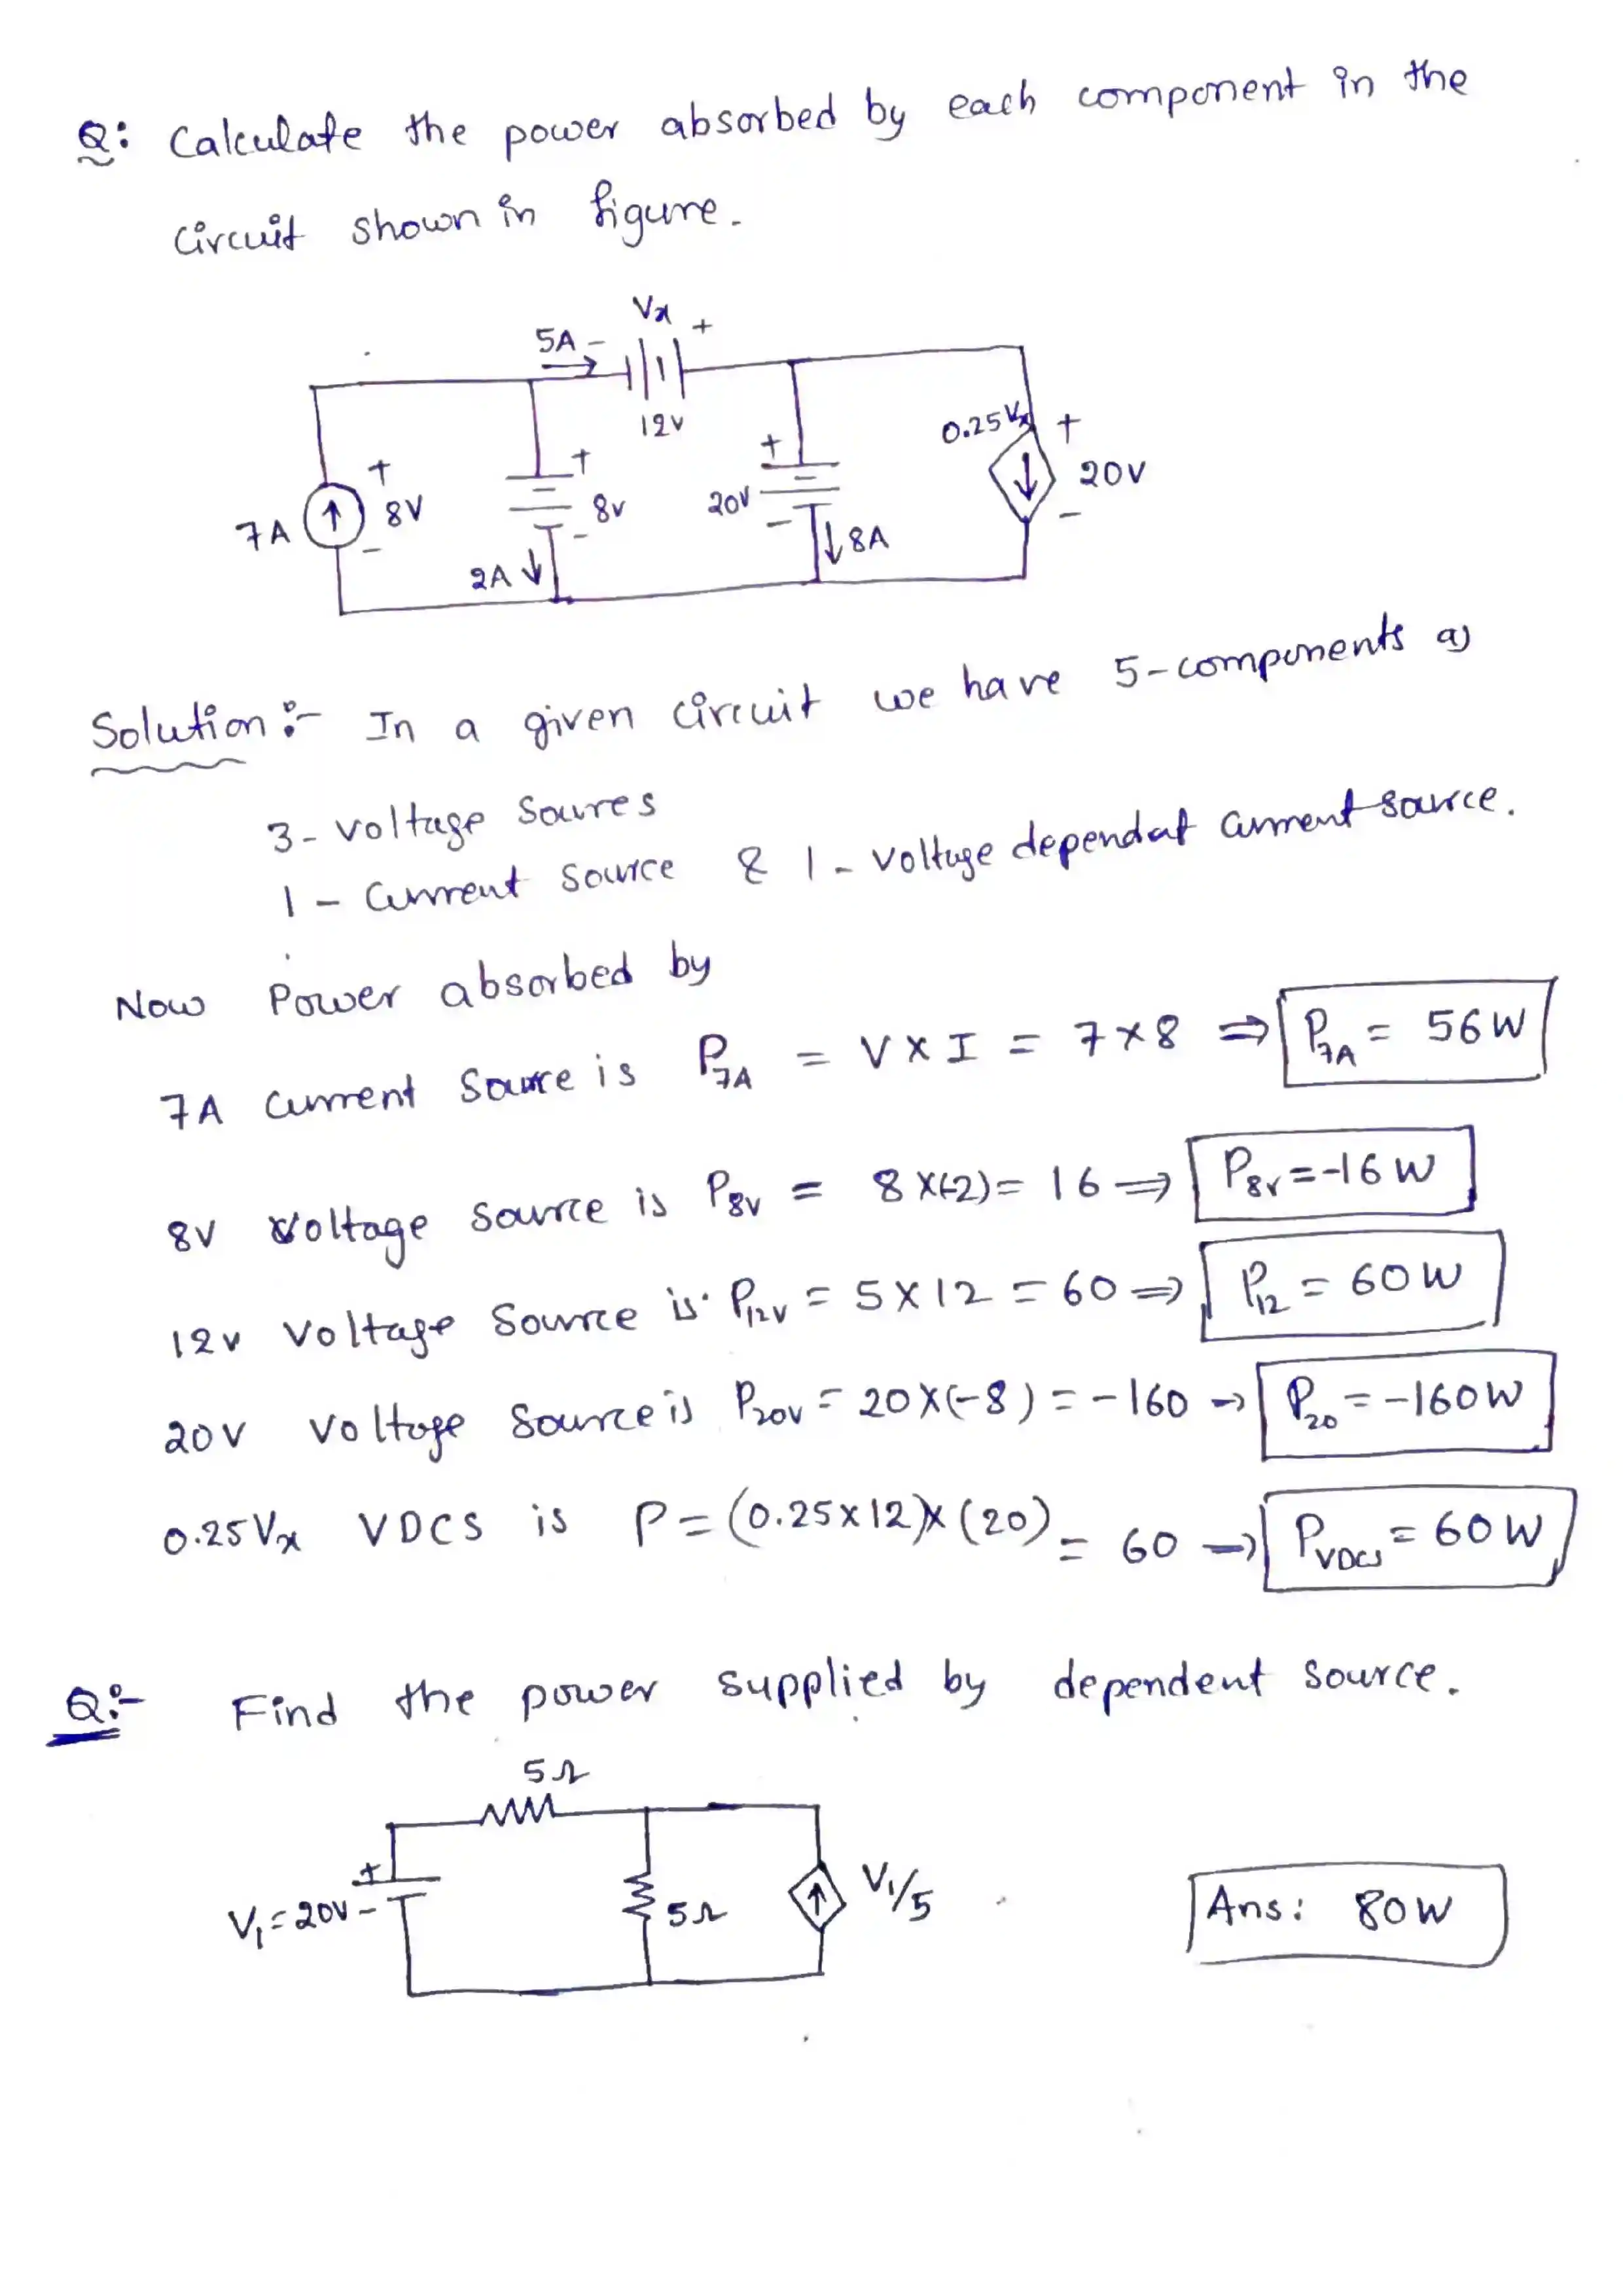 Q: Calculate the power absorbed by each component in the
circuit shown in figure.
Vx
5A - +
12V
0.25Vx +
+ + +
7A 8V 8V 20V 20V
- - - -
2A 8A
Solution :- In a given circuit we have 5-components as
3- voltage Soures
1 - Current Source & 1 - voltage dependat current source.
Now Power absorbed by
7A current Soure is P7A = V X I = 7 X 8 ⇒ P7A = 56W
8V Voltage source is P8V = 8 X(-2) = 16 ⇒ P8V = -16 W
12V Voltage Source is P12V = 5 X 12 = 60 ⇒ P12 = 60W
20V Voltage Source is P20V = 20 X (-8) = -160 → P20 = -160W
0.25Vx VDCS is P = (0.25 x 12) X (20) = 60 → PVDCS = 60W
Q:- Find the power supplied by dependent source.
5Ω
+
V1 = 20V - 5Ω V1/5
Ans: 80W